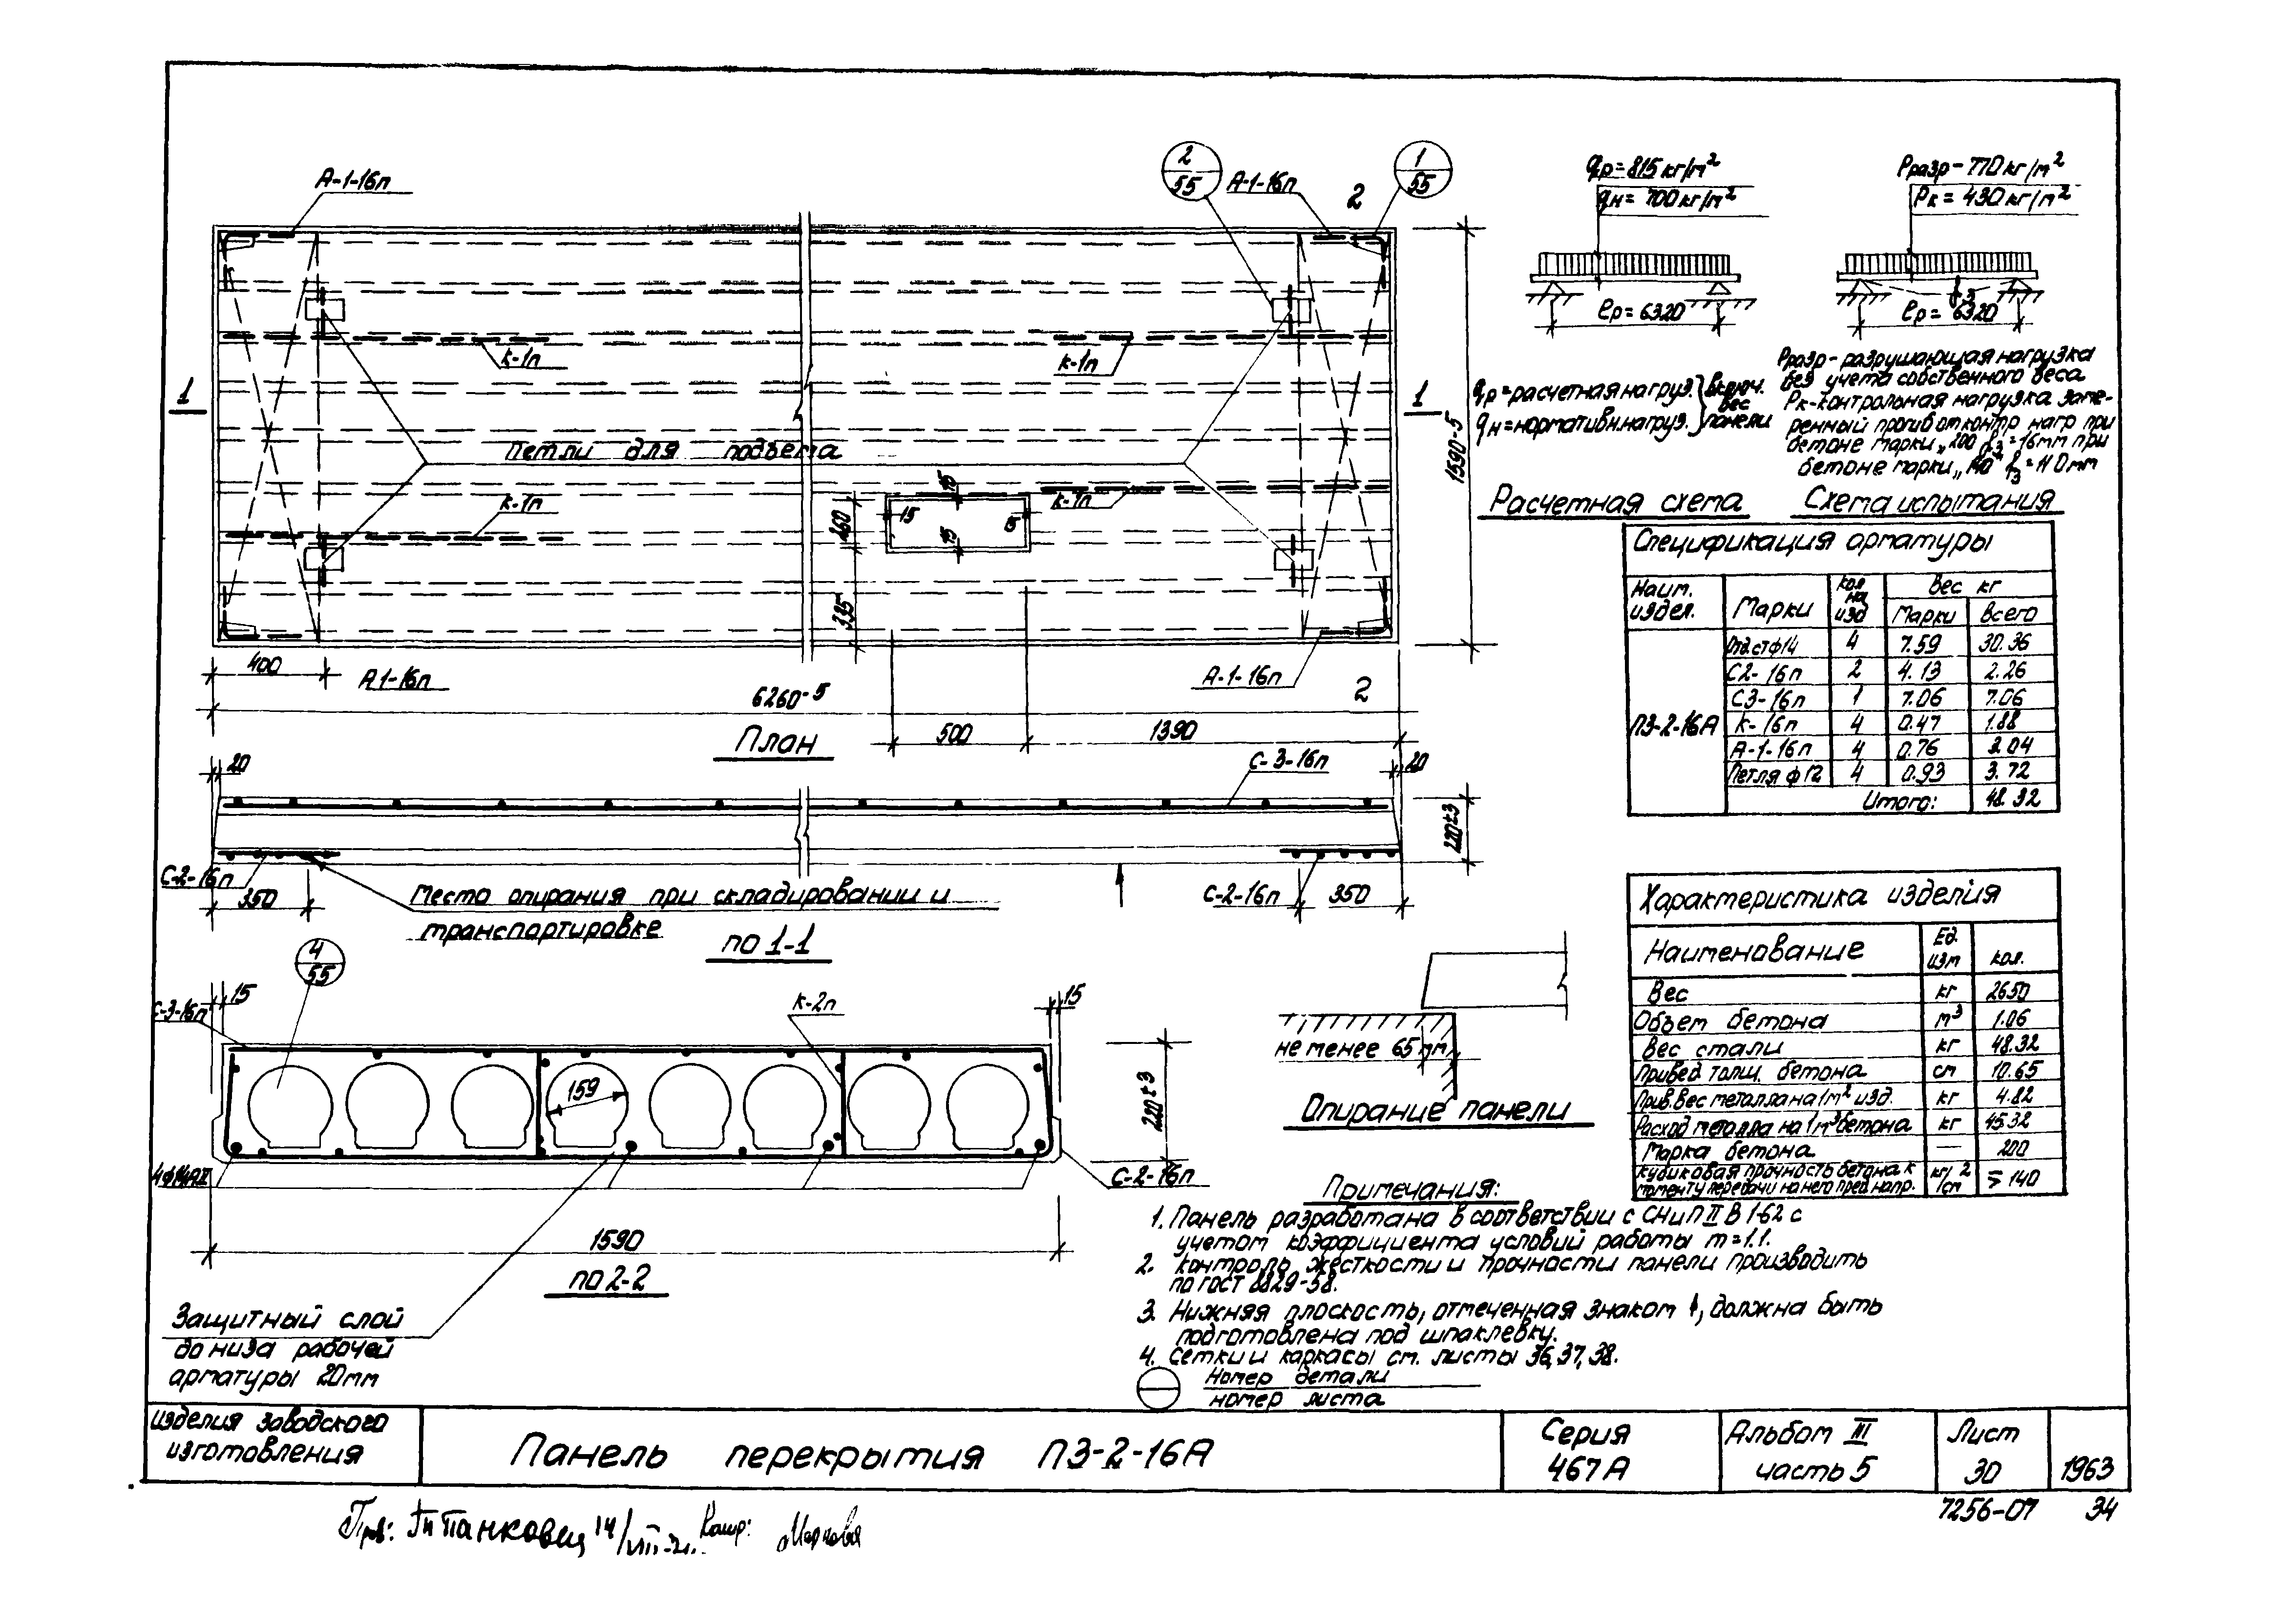 А-1-16п
2
55
А-1-16п
2
1
55
к-1п
к-1п
1
1
Петли для подъема
1590-5
к-1п
к-1п
15
15
15
15
260
335
400
А1-16п
А-1-16п
2
6260-5
План
500
1390
20
С-3-16п
20
220±3
С-2-16п
350
Место опирания при складировании и
транспортировке
по 1-1
С-2-16п
350
4
55
С-3-16п
15
к-2п
15
159
220±3
4ф14АII
С-2-16п
1590
по 2-2
Защитный слой
до низа рабочей
арматуры 20мм
не менее 65мм
Опирание панели
qр=815кг/м²
qн=700кг/м²
ℓр=6320
qр=расчетная нагруз.
qн=нормативн.нагруз.
включ.
вес
панели
Расчетная схема
Рразр-770кг/м²
Рк=430кг/м²
f₃
ℓр=6320
Рразр-разрушающая нагрузка
без учета собственного веса
Рк-контрольная нагрузка заме-
ренный прогиб от контр нагр при
бетоне марки „200 f₃=16мм при
бетоне марки „140" f₃=11.0мм
Схема испытания
Спецификация арматуры
Наим. издел. Марки кол на изд Вес кг
Марки Всего
П3-2-16А
Отд.стф14 4 7.59 30.36
С2-16п 2 4.13 2.26
С3-16п 1 7.06 7.06
К-16п 4 0.47 1.88
А-1-16п 4 0.76 3.04
Петля ф12 4 0.93 3.72
Итого: 48.32
Характеристика изделия
Наименование Ед. изм кол.
Вес кг 2650
Объем бетона м³ 1.06
Вес стали кг 48.32
Привед толщ. бетона см 10.65
Прив.вес металла на 1м² изд. кг 4.82
Расход металла на 1м³ бетона кг 45.32
Марка бетона — 200
Кубиковая прочность бетона к
моменту передачи на него пред.напр. кг/см² ≥140
Примечания:
1. Панель разработана в соответствии с СНиП II В 1-62 с
учетом коэффициента условий работы m=1.1.
2. Контроль жесткости и прочности панели производить
по ГОСТ 8829-58.
3. Нижняя плоскость, отмеченная знаком ↑, должна быть
подготовлена под шпаклевку.
4. Сетки и каркасы см. листы 36, 37, 38.
Номер детали
номер листа
изделия заводского
изготовления
Панель перекрытия П3-2-16А
Серия
467А
Альбом III
часть 5
Лист
30
1963
7256-07 34
Пров: